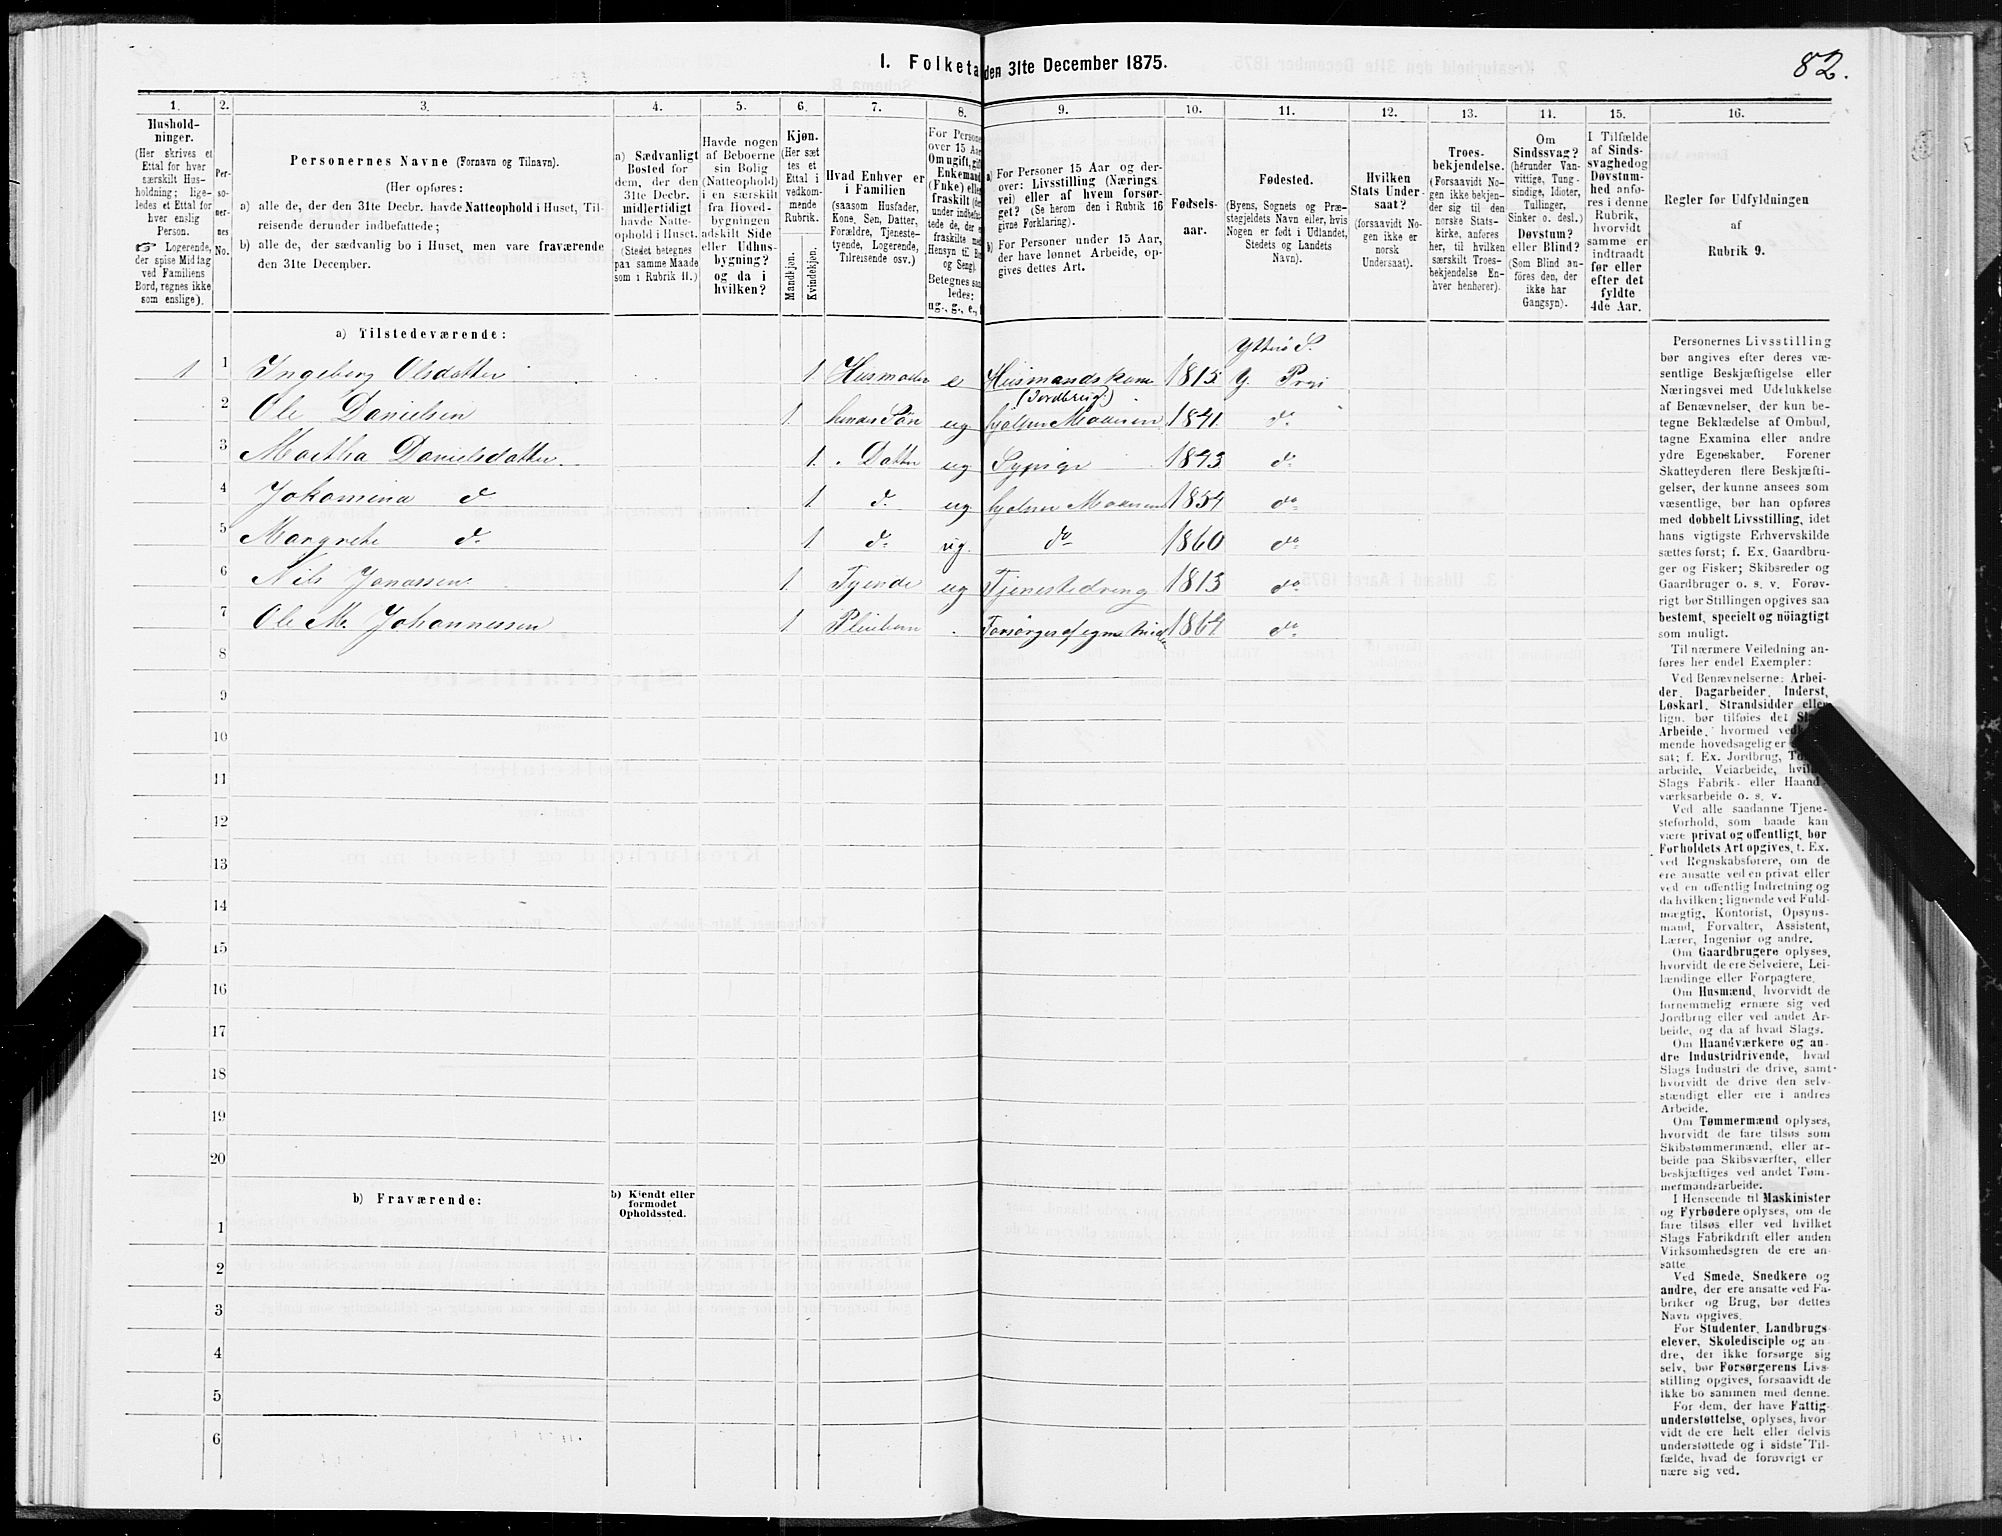 I. Folketa den 31te December 1875.
82.
1. 2. 3. 4. 5. 6. 7. 8. 9. 10. 11. 12. 13. 14. 15. 16.
Hushold-
ninger.
(Her skrives et
Ettal for hver
særskilt Hus-
holdning; lige-
ledes et Ettal for
hver enslig
Person.
☞ Logerende,
der spise Middag
ved Familiens
Bord, regnes ikke
som enslige).
Per-
so-
ner-
nes
No.
Personernes Navne (Fornavn og Tilnavn).
(Her opføres:
a) alle de, der den 31te Decbr. havde Natteophold i Huset, Til-
reisende derunder indbefattede;
b) alle de, der sædvanlig bo i Huset, men vare fraværende
den 31te December.
a) Sædvanligt
Bosted for
dem, der den
31te Decbr.
midlertidigt
havde Natte-
ophold i Huset.
(Stedet betegnes
paa samme Maade
som i Rubrik 11.)
Havde nogen
af Beboerne
sin Bolig
(Natteophold)
i en særskilt
fra Hoved-
bygningen
adskilt Side
eller Udhus-
bygning?
og da i
hvilken?
Kjøn.
(Her sæt-
tes et
Ettal i
vedkom-
mende
Rubrik.
Mandkjøn.
Kvindekjøn.
Hvad Enhver er
i Familien
(saasom Husfader,
Kone, Søn, Datter,
Forældre, Tjeneste-
tyende, Logerende,
Tilreisende osv.)
For Persone
over 15 Aa
Om ugift, gift
Enkemand
(Enke) elle
fraskilt (her-
under indbefat-
tede de, der e
fraskilte me
Hensyn til Bo
og Seng).
Betegnes saa
ledes:
ug., g., e.,
a) For Personer 15 Aar og der-
over: Livsstilling (Nærings
vei) eller af hvem forsør-
get? (Se herom den i Rubrik 16
givne Forklaring).
b) For Personer under 15 Aar,
der have lønnet Arbeide, op-
gives dettes Art.
Fødsels-
aar.
Fødested.
(Byens, Sognets og Præ-
stegjeldets Navn eller, hvis
Nogen er født i Udlandet,
Stedets og Landets
Navn).
Hvilken
Stats Under-
saat?
(forsaavidt No-
gen ikke er
norsk
Undersaat).
Troes-
bekjendelse.
(Forsaavidt No-
gen ikke bekjen-
der sig til den
norske Stats-
kirke, anføres
her, til hvilken
særskilt Troes-
bekjendelse En-
hver henhører).
Om
Sindssvag?
(herunder Van-
vittige, Tung-
sindige, Idioter,
Tullinger,
Sinker o. desl.)
Døvstum?
eller Blind?
(Som Blind an-
føres den, der
ikke har
Gangsyn).
I Tilfælde
af Sinds-
svaghed og
Døvstum-
hed anfø-
res i denne
Rubrik,
hvorvidt
samme er
indtraadt
før eller
efter det
fyldte
4de Aar.
Regler for Udfyldningen
af
Rubrik 9.
a) Tilstedeværende:
Ytterø S.
1 1 Ingeberg Olsdatter 1 Husmoder e Husmandskone 1815 Y. Prgj
(Jordbrug)
2 Ole Danielsen 1 hendes Søn ug hjelper Moderen 1841 do
3 Martha Danielsdatter 1. Datter ug Sypige 1843 do
4 Jokamina do 1 do ug hjelper Moderen 1854 do
5 Margrete do 1 do ug. do 1860 do
6 Nils Jonassen 1 Tyende ug Tjenestedreng 1813 do
7 Ole M. Johannessen 1 Pleiebarn Forsørges af egne Midler 1864 do
8
9
10
11
12
13
14
15
16
17
18
19
20
b) Fraværende:
b) Kjendt eller
formodet
Opholdssted.
1
2
3
4
5
6
Personernes Livsstilling
bør angives efter deres væ-
sentlige Beskjæftigelse eller
Næringsvei med Udelukkelse
af Benævnelser, der kun be-
tegne Beklædelse af Ombud,
tagne Examina eller andre
ydre Egenskaber. Forener
Skatteyderen flere Beskjæfti-
gelser, der kunne ansees som
væsentlige, bør han opføres
med dobbelt Livsstilling, idet
hans vigtigste Erhvervskilde
sættes først; f. Ex. Gaardbru-
ger og Fisker; Skibsreder og
Gaardbruger o. s. v. Forøv-
rigt bør Stillingen opgives saa
bestemt, specielt og nöiagtigt
som muligt.
Til nærmere Veiledning an-
føres her endel Exempler:
Ved Benævnelserne: Arbei-
der, Dagarbeider, Inderst,
Løskarl, Strandsidder eller
lign. bør tilføies det
Arbeide, hvormed
mende hovedsagelig er
sat; f. Ex. Jordbrug,
arbeide, Veiarbeide,
Slags Fabrik- eller Haand-
værksarbeide o. s. v.
Ved alle saadanne Tjene-
steforhold, som baade kan
være privat og offentligt, bør
Forholdets Art opgives, t. Ex.
ved Regnskabsførere, om de
ere ansatte ved en privat eller
ved en offentlig Indretning og
da hvilken; lignende ved Fuld-
mægtig, Kontorist, Opsyns-
mand, Forvalter, Assistent,
Lærer, Ingeniør og andre.
Om Gaardbrugere oplyses,
hvorvidt de ere Selveiere, Lei-
lændinge eller Forpagtere.
Om Husmænd, hvorvidt de
fornemmelig ernære sig ved
Jordbrug eller ved andet Ar-
beide, og da af hvad Slags.
Om Haandværkere og an-
dre Industridrivende, hvad
Slags Industri de drive, samt
hvorvidt de drive den selv-
stændigt eller ere i andres
Arbeide.
Om Tømmermænd oplyses,
hvorvidt de fare tilsøs som
Skibstømmermænd, eller ar-
beide paa Skibsværfter, eller
beskjæftiges ved andet Tøm-
mermandsarbeide.
I Henseende til Maskinister
og Fyrbødere oplyses, om de
fare tilsøs eller ved hvilket
Slags Fabrikdrift eller anden
Virksomhedsgren de ere an-
satte
Ved Smede, Snedkere og
andre, der ere ansatte ved Fa-
briker og Brug, bør dettes
Navn opgives.
For Studenter, Landbrugs-
elever, Skoledisciple og an-
dre, der ikke forsørge sig
selv, bør Forsørgerens Livs-
stilling opgives, forsaavidt de
ikke bo sammen med denne.
For dem, der have Fattig-
understøttelse, oplyses, hvor-
vidt de ere helt eller delvis
understøttede og i sidste Til-
fælde, hvad de forøvrigt er
nære sig ved.